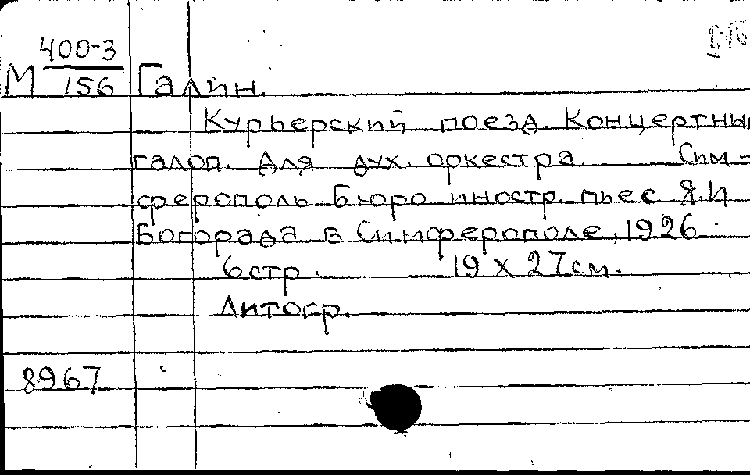 М 400-3
156
Галин.
Курьерский поезд. Концертный
галоп. Для дух. оркестра. Сим-
ферополь Бюро иностр. пьес Я.И
Богорада в Симферополе, 1926.
6 стр. 19 х 27 см.
Литогр.
8967